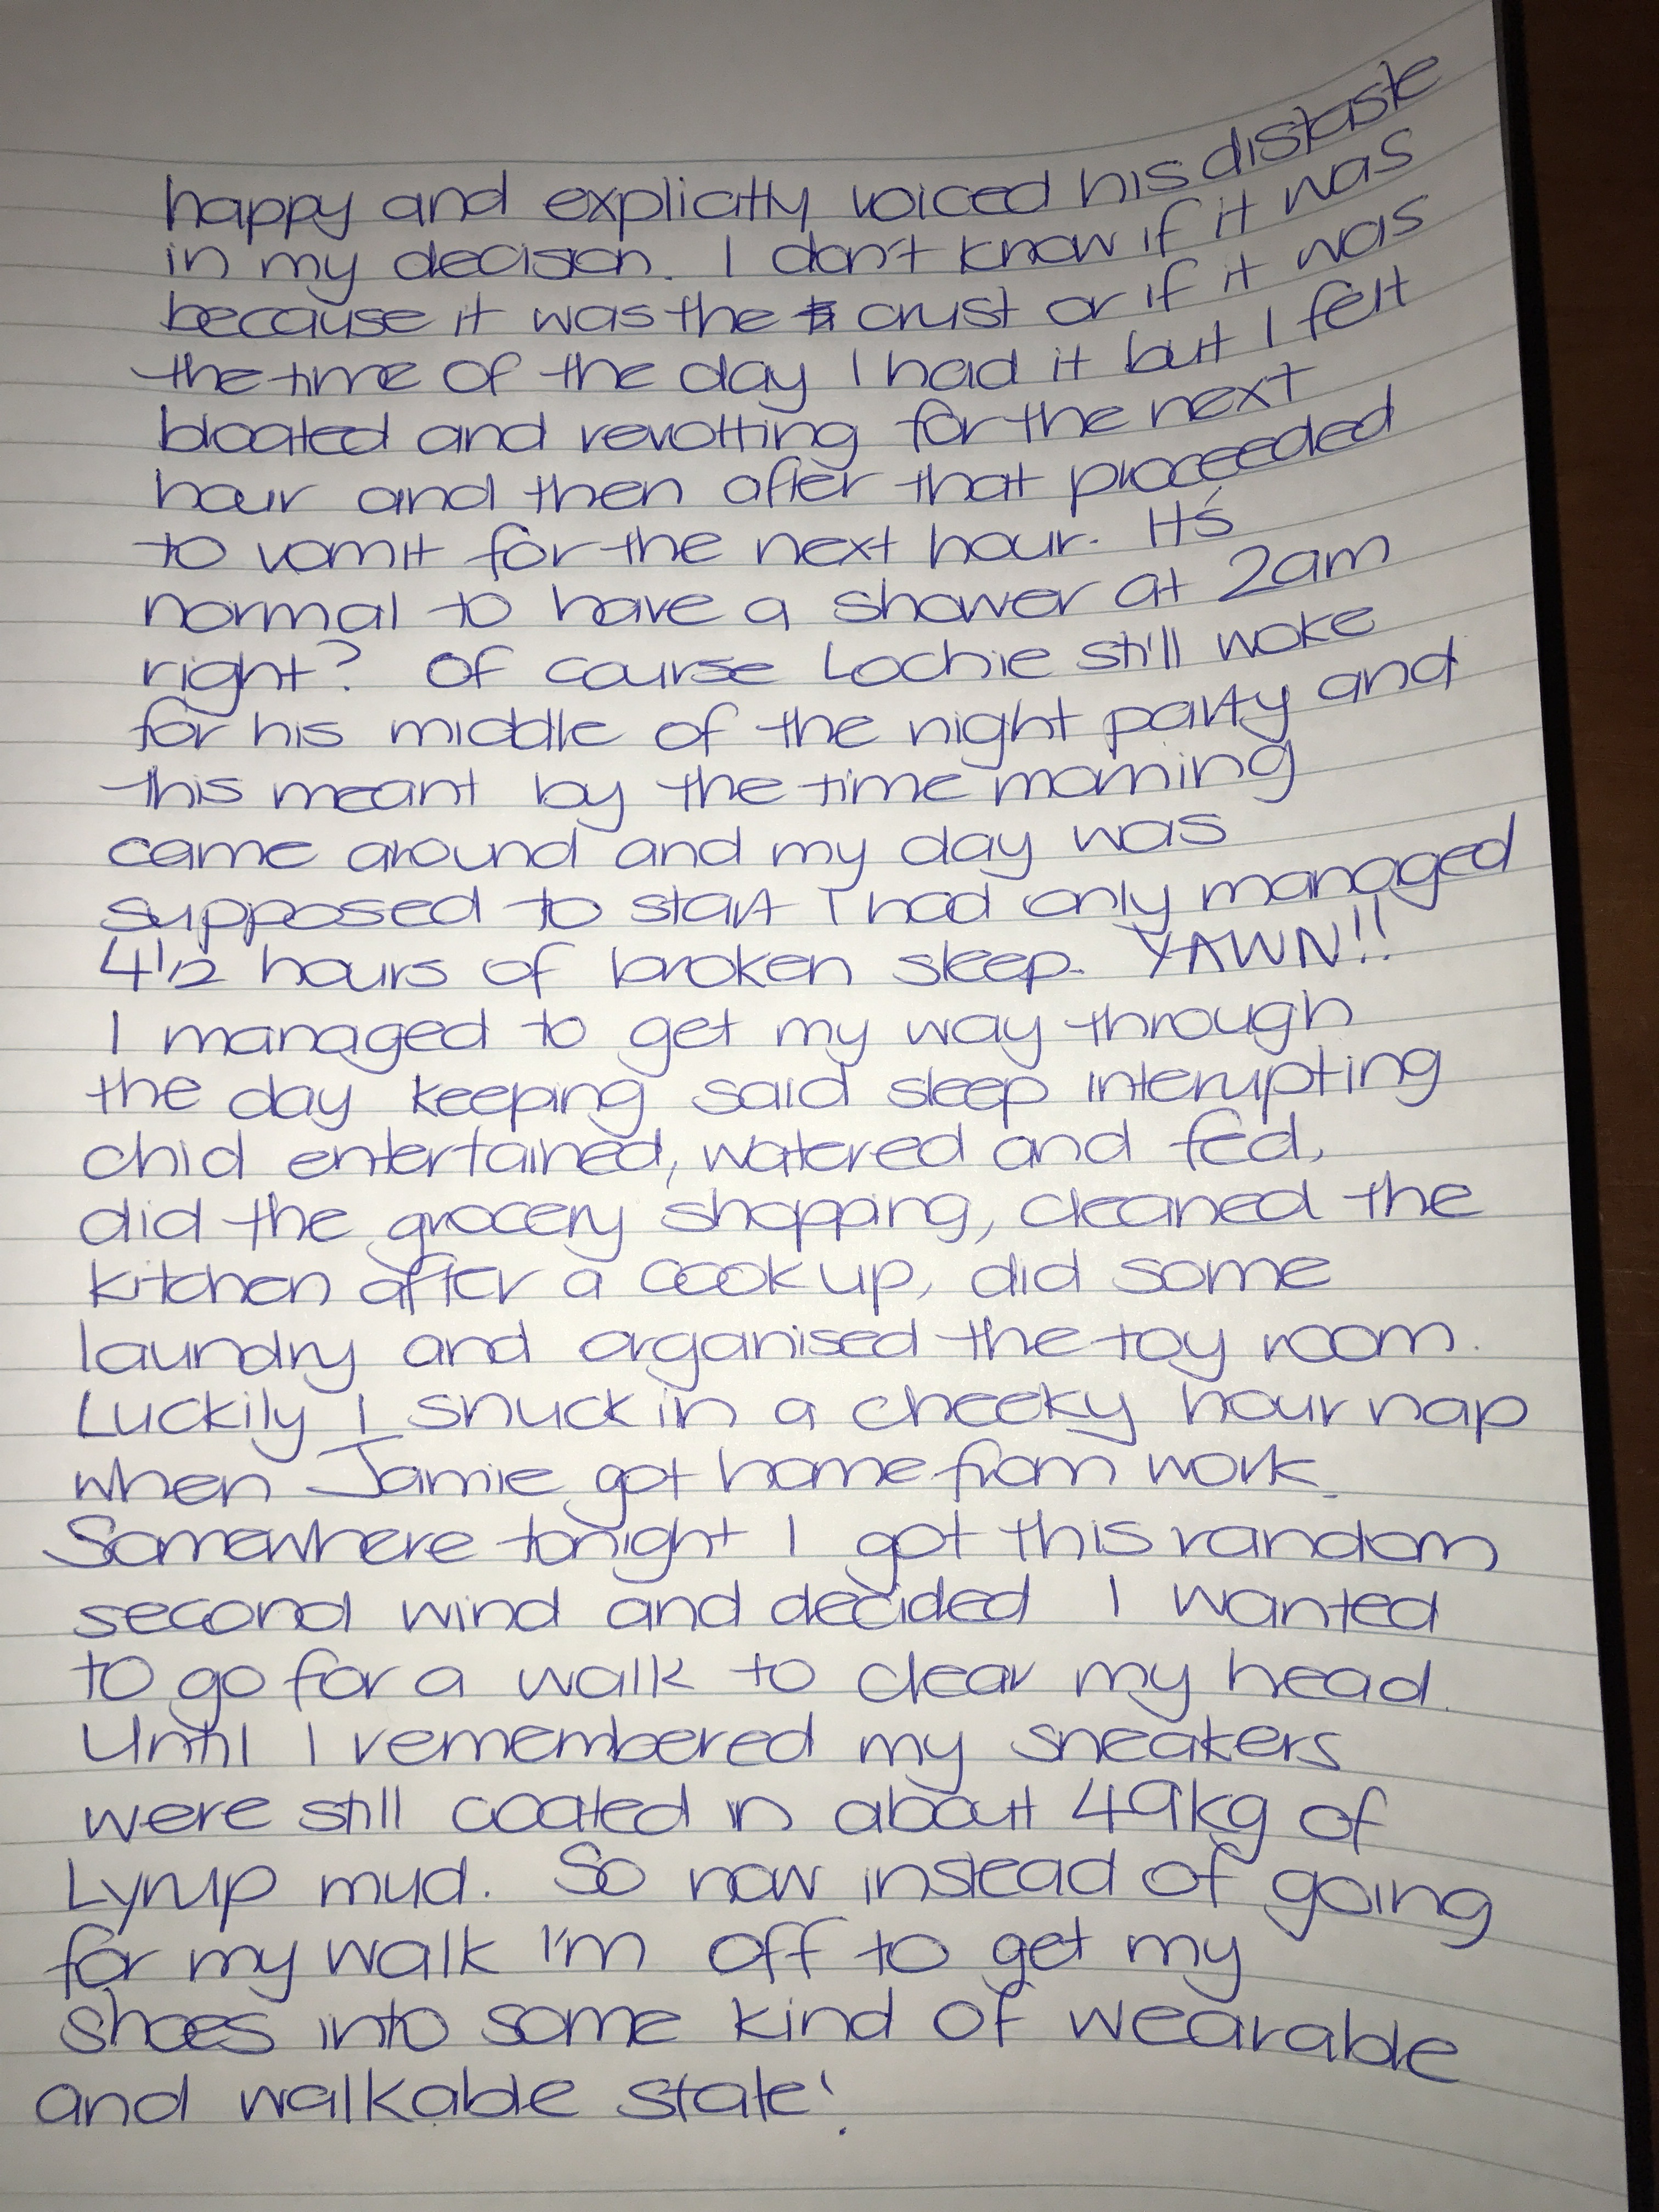 happy and explicitly voiced his distaste
in my decision. I don't know if it was
because it was the crust or if it was
the time of the day I had it but I felt
bloated and revolting for the next
hour and then after that proceeded
to vomit for the next hour. It's
normal to have a shower at 2am
right? Of course Lochie still woke
for his middle of the night party and
this meant by the time morning
came around and my day was
supposed to start I had only managed
4 1/2 hours of broken sleep. YAWN!!
I managed to get my way through
the day keeping said sleep interupting
chid entertained, watered and fed,
did the grocery shopping, cleaned the
kitchen after a cook up, did some
laundry and organised the toy room.
Luckily I snuck in a cheeky hour nap
when Jamie got home from work.
Somewhere tonight I got this random
second wind and decided I wanted
to go for a walk to clear my head.
Until I remembered my sneakers
were still coated in about 49kg of
Lyrup mud. So now instead of going
for my walk I'm off to get my
shoes into some kind of wearable
and walkable state!